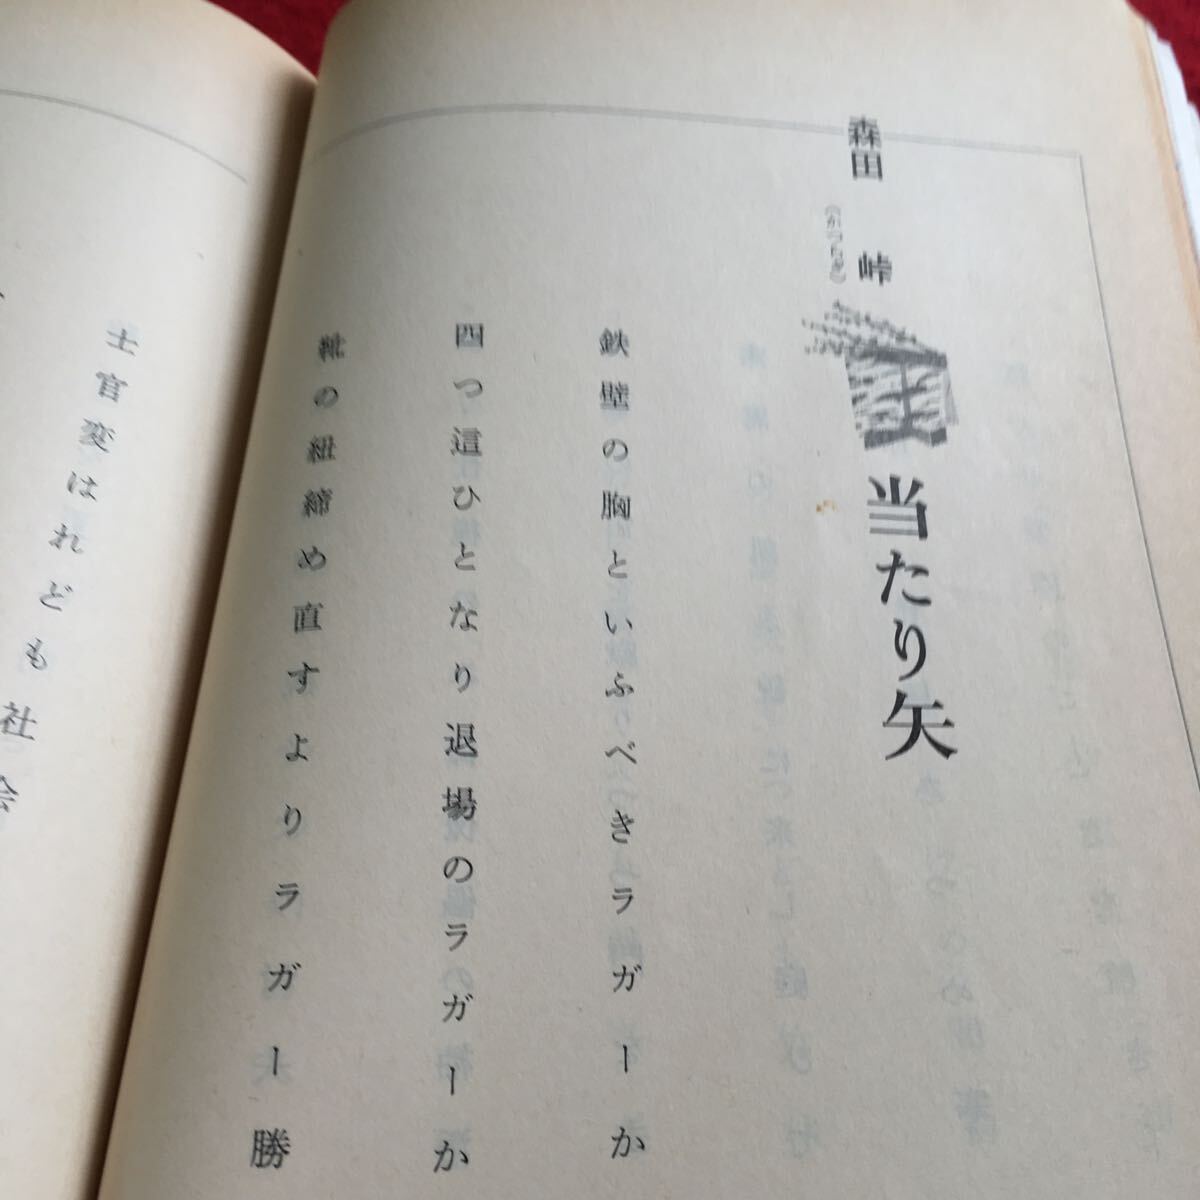 森田 峠
(かつらぎ)
当たり矢
鉄壁の胸といふべきラガーか
四つ這ひとなり退場のラガーか
靴の紐締め直すよりラガー勝
士官変はれども
社会